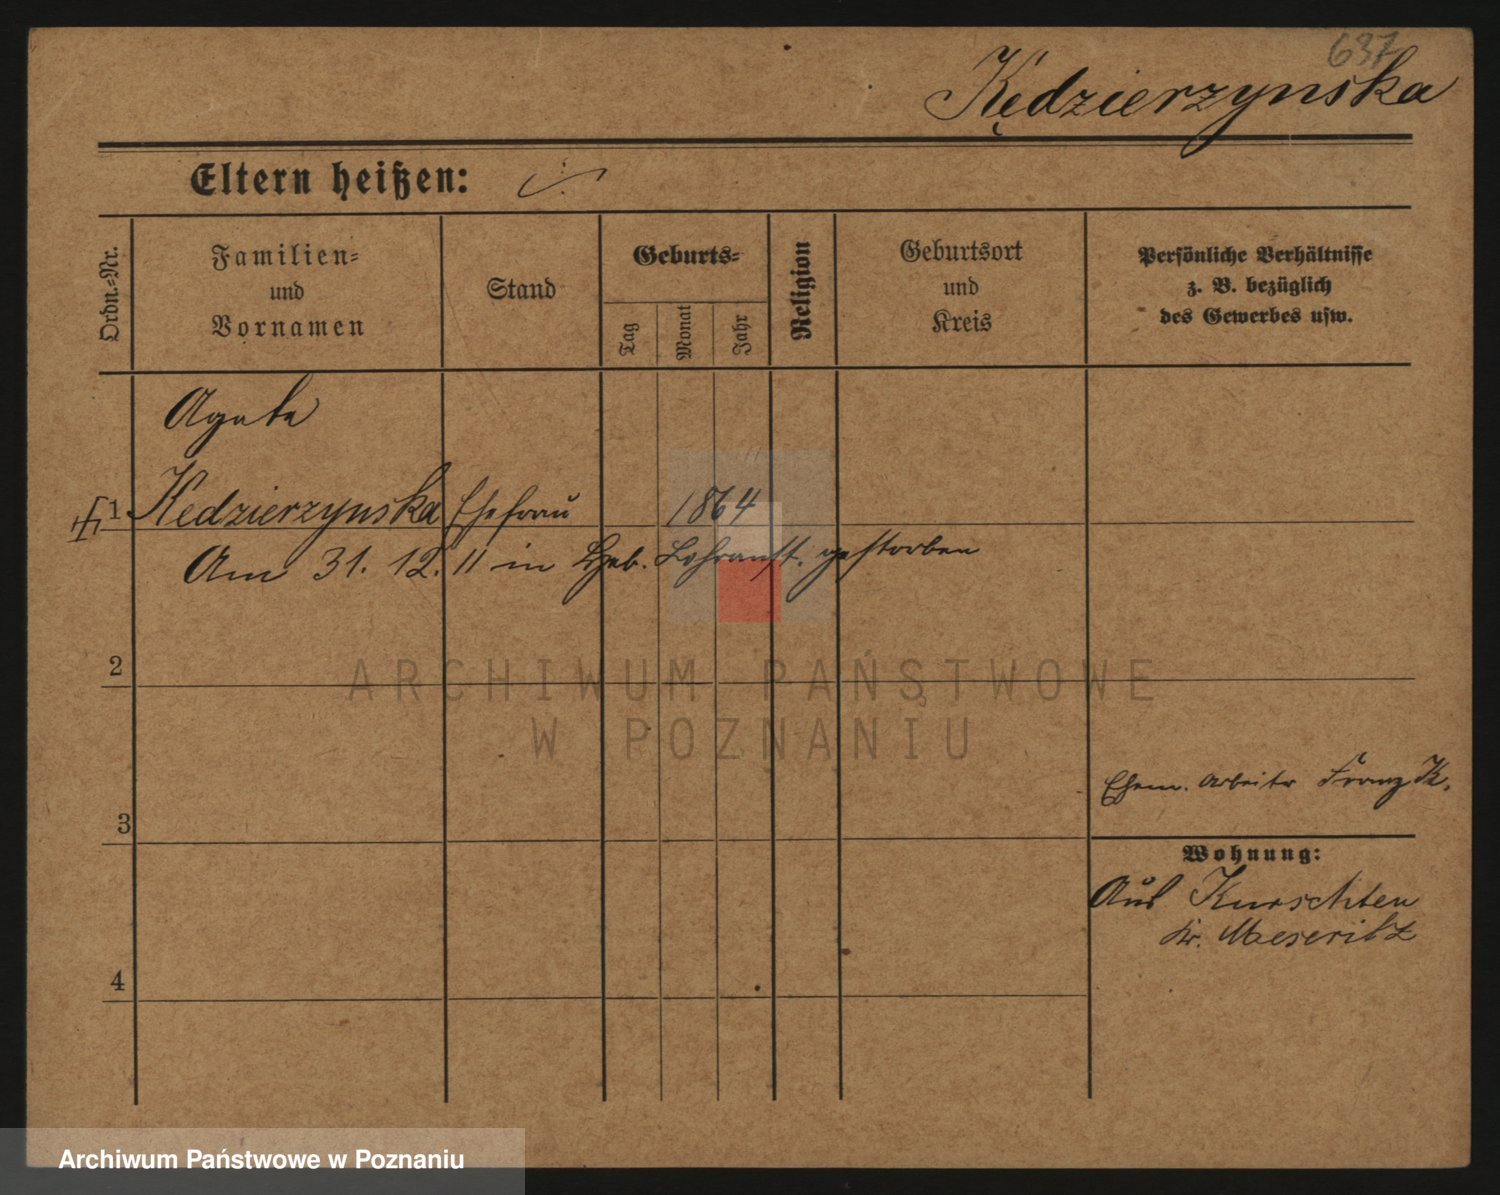 637
Kędzierzynska
Eltern heißen:
Ordn.-Nr.
Familien=
und
Vornamen
Stand
Geburts=
Tag
Monat
Jahr
Religion
Geburtsort
und
Kreis
Persönliche Verhältnisse
z. B. bezüglich
des Gewerbes usw.
Agata
1 Kedzierzynska Ehefrau 1864
Am 31. 12. 11 in gestorben
2
ARCHIWUM PAŃSTWOWE
W POZNANIU
Ehem. Arbeiter Franz K.
3
Wohnung:
Aus Kurschten
Kr. Meseritz
4
Archiwum Państwowe w Poznaniu